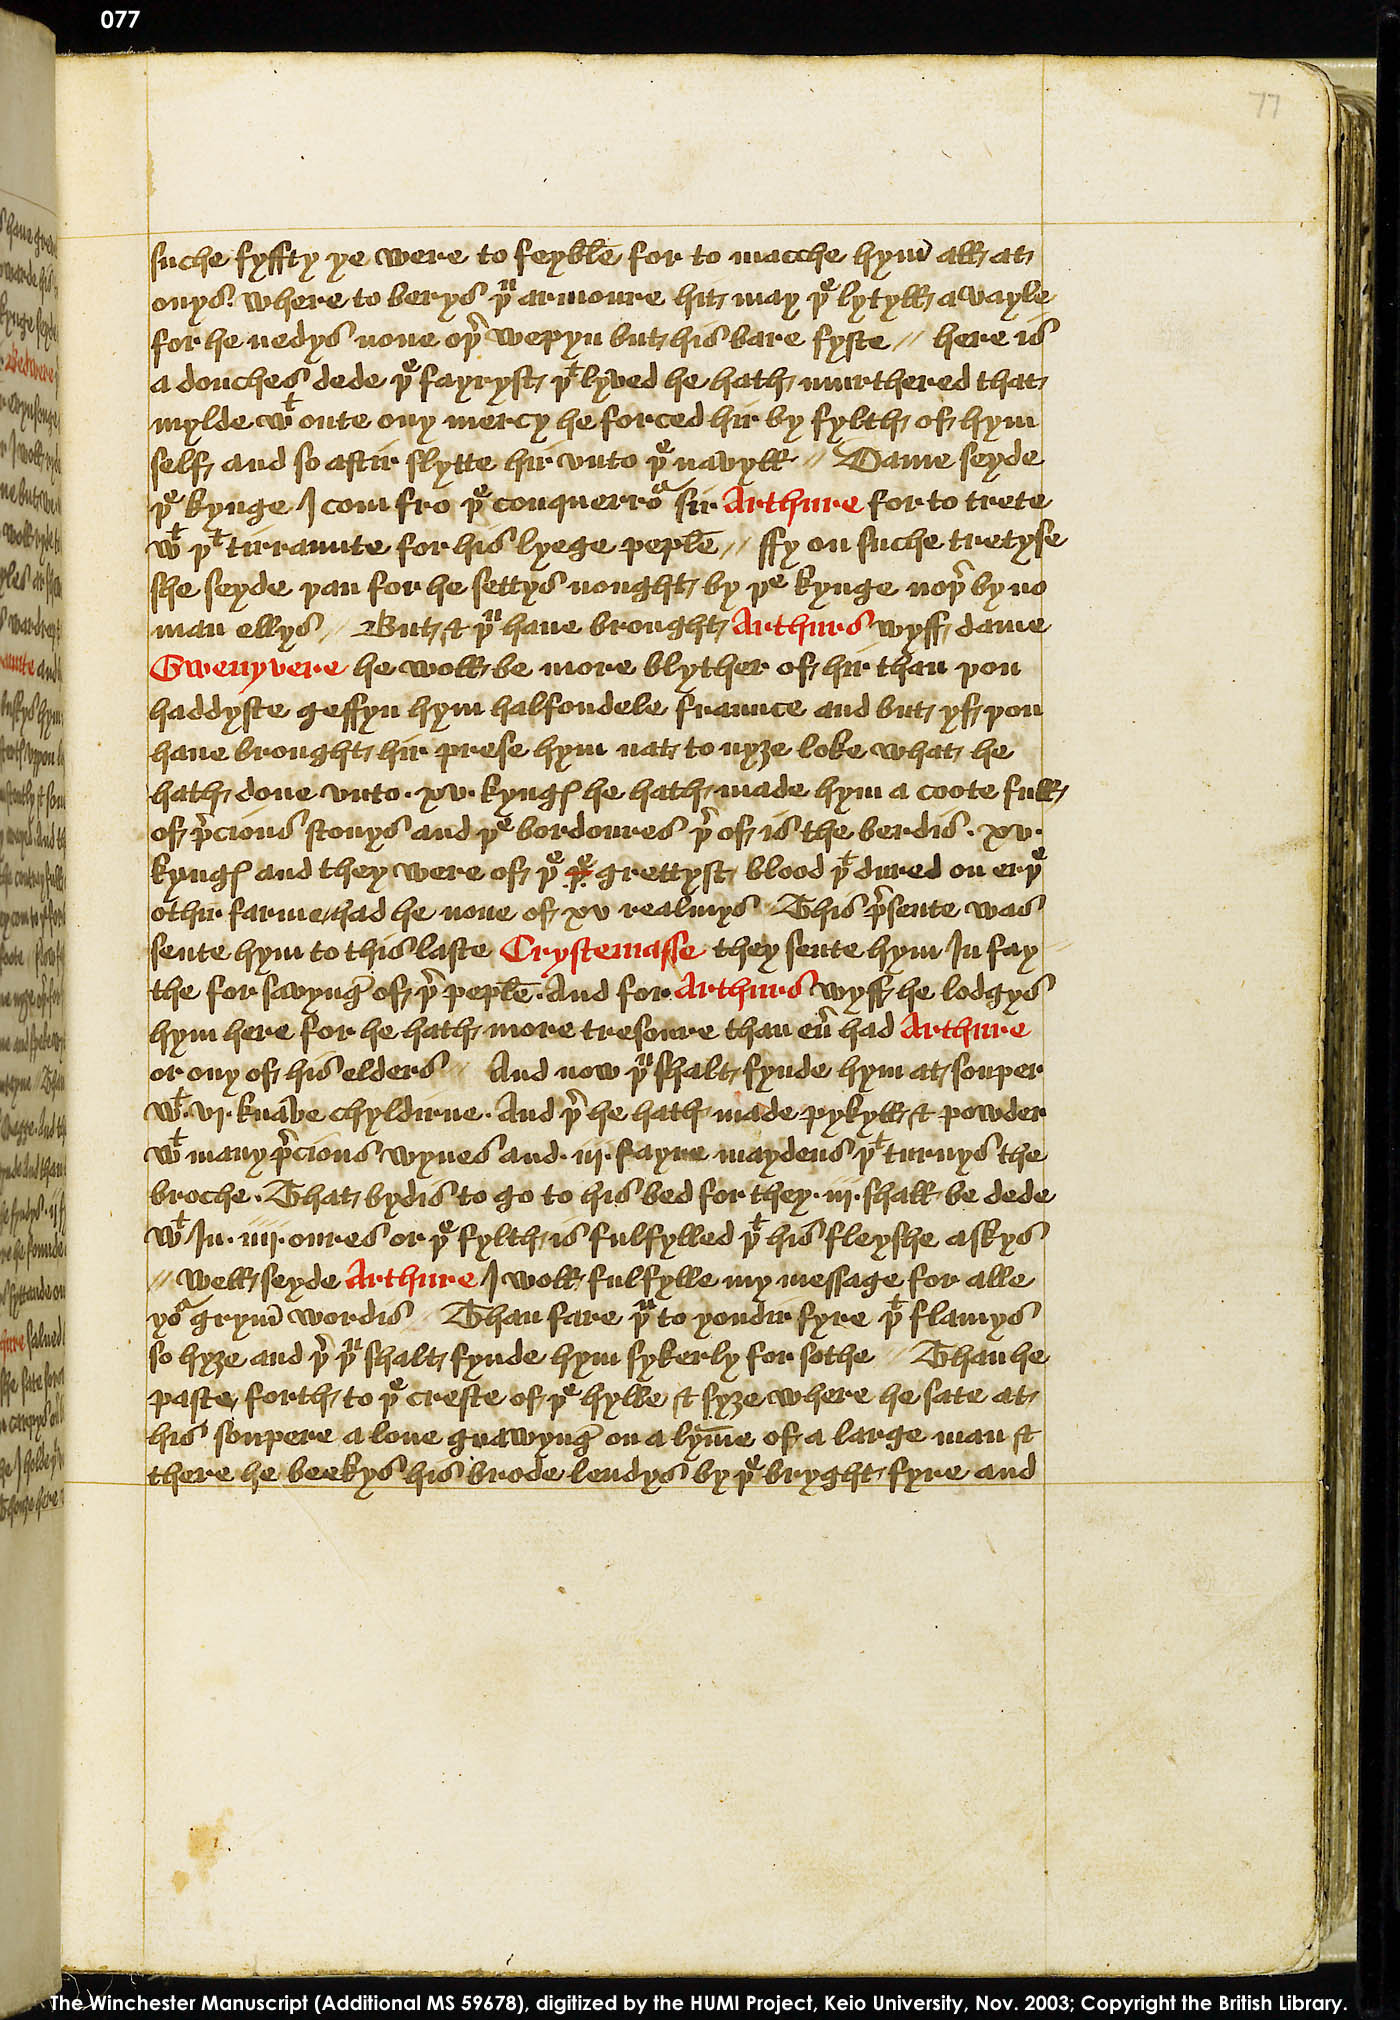 077
77
suche fyffty ye were to feyble for to macche hym all at
onys. where to berys þu armoure hit may þe lytyll a vayle
for he nedys none oþr wepyn but his bare fyste // here is
a douches dede þe fayryst þt lyved he hath murthered that
mylde wt oute ony mercy he forced hir by fylth of hym
self and so aftir slytte hir vnto þe navyll // Dame seyde
þe kynge I com fro þe conquerror sir Arthure for to trete
wt þt tirraunte for his lyege peple // ffy on suche tretyse
she seyde þan for he settys nought by þe kynge noþr by no
man ellys // But & þu haue brought Arthurs wyff dame
Gwenyvere he woll be more blyther of hir than þou
haddyste geffyn hym halfondele fraunce and but yf þou
haue brought hir prese hym nat to nyȝe loke what he
hath done vnto .xv. kyngꝭ he hath made hym a coote full
of precious stonys and þe bordoures þrof is the berdis .xv.
kyngꝭ and they were of þe þe grettyst blood þt dured on erþe
othir farme had he none of xv realmys // This presente was
sente hym to this laste Crystemasse they sente hym In fay
the for savyng of þr peple. And for Arthurs wyff he lodgys
hym here for he hath more tresoure than eur had Arthure
or ony of his elders // And now þu shalt fynde hym at souper
wt .vj. knave chyldirne. And þr he hath made pykyll & powder
wt many precious wynes and .iij. fayre maydens þt turnys the
broche. That bydis to go to his bed for they .iij. shall be dede
wt In .iiij. oures or þe fylth is fulfylled þt his fleyshe askys
// well seyde Arthure I woll fulfylle my message for alle
yor grym wordis // Than fare þu to yondir fyre þt flamys
so hyȝe and þr þu shalt fynde hym sykerly for sothe // Than he
paste forth to þe creste of þe hylle & syȝe where he sate at
his soupere a lone gnawyng on a lymme of a large man &
there he beekys his brode lendys by þe bryght fyre and
The Winchester Manuscript (Additional MS 59678), digitized by the HUMI Project, Keio University, Nov. 2003; Copyright the British Library.